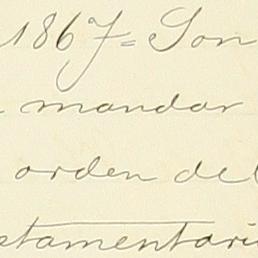 1867= Son
mandar
orden del
stamentari